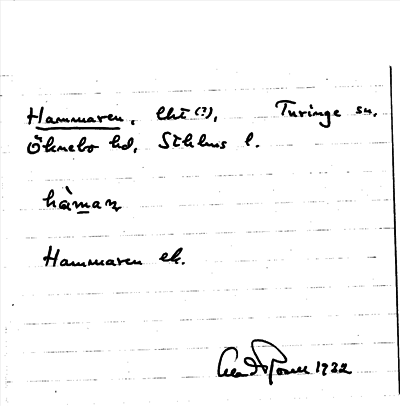 Hammaren, lht (?), Turinge sn.
Öknebo hd, Sthlms l.
hàmaɳ
Hammaren ek.
1932